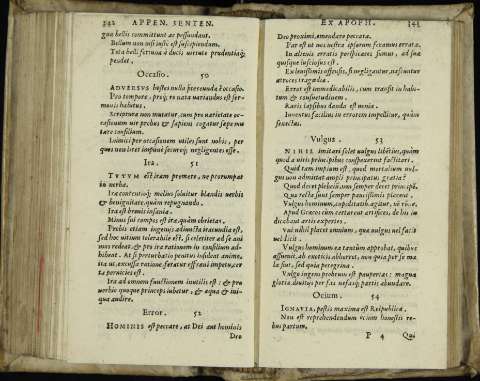 342 APPEN. SENTEN.
qua bellis committunt ac pessundant.
Bellum non nisi iustè est suscipiendum.
Tota belli fortuna à ducis virtute prudentiaq́;
pendet,
Occasio. 50
ADVERSVS hostes nulla prætereunda est occasio.
Pro tempore, proq́; re nata variandus est ser-
monis habitus.
Scriptura non mutatur, cum pro varietate oc-
casionum vir probus & sapiens cogatur sæpe mu-
tare consilium.
Inimici per occasionem vtiles sunt nobis, per
quos non licet impunè securéq; negligentes esse.
Ira. 51
TVTVM est iram premere, ne prorumpat
in verba.
Ira contentioq́; melius soluitur blandis verbis
& benignitate, quàm repugnando.
Ira est breuis insania.
Minus sui compos est ira, quàm ebrietas.
Probis etiam ingenijs admixta iracundia est,
sed hoc vitium tolerabile est, si celeriter ad se ani
mus redeat, & pro ira rationem in consilium ad-
hibeat. At si perturbatio penitus insideat animo,
ita vt, excussa ratione feratur effræni impetu, cer
ta pernicies est.
Ira ad omnem functionem inutilis est: & pro
uerbio quoque princeps iubetur, & æqua & ini-
qua audire.
Error. 52
HOMINIS est peccare, at Dei aut hominis
Deo
EX APOPH. 343
Deo proximi, emendare peccata.
Par est vt nos nostra ipsorum feramus errata.
In alienis erratis perspicaces sumus, ad sua
quisque lusciosus est.
Ex leuissimis offensis, si negligantur, nascuntur
atroces tragœdiæ.
Error est immedicabilis, cum transit in habi-
tum & consuetudinem.
Raris lapsibus danda est venia.
Iuuentus facilius in errorem impellitur, quàm
senectus.
Vulgus. 53
NIHIL imitari solet vulgus libẽtius, quàm
quod a vitis principibus conspexerint factitari.
Quid tam impium est, quod mortalium vul-
gus non admittat ampli principatus gratia?
Quod decet plebeiũ, non semper decet principẽ.
Quæ recta sunt semper paucissimis placent.
Vulgus hominum, cupiditatib. agitur, nõ ratione.
Apud Græcos cùm certarent artifices, de his in
dicabant artis expertes.
vni nihil placet omnium, quæ vulgus vel facit
vel dicit.
Vulgus hominum ea tantùm approbat, quibus
assueuit, ab exoticis abhorret, non quia per se ma
la sint, sed quia peregrina.
Vulgus ingens probrum est paupertas: magna
gloria, diuitijs per fas nefasq́; partis abundare.
Otium. 54
IGNAVIA, pestis maxima est Reipublicæ.
Non est reprehendendum ocium honestis re-
bus partum.
P 4 Qui